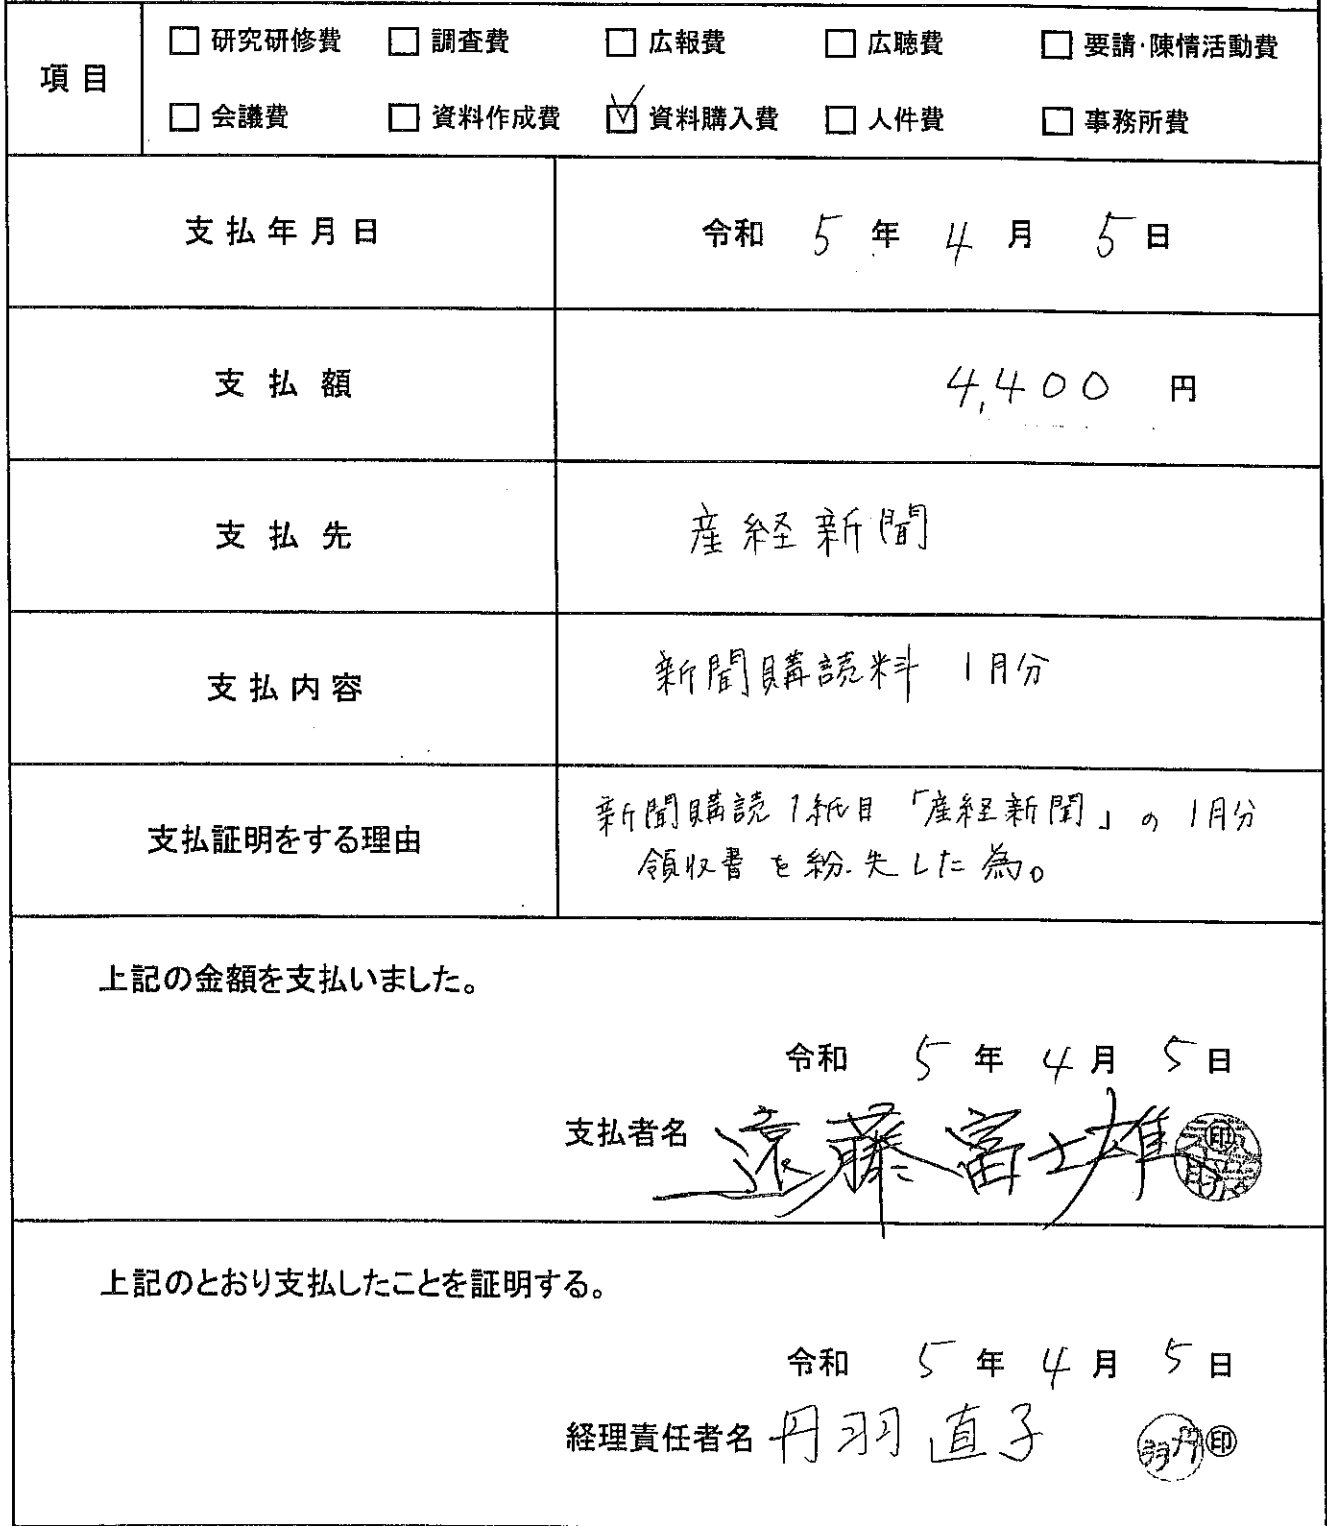 項目
□ 研究研修費 □ 調査費 □ 広報費 □ 広聴費 □ 要請・陳情活動費
□ 会議費 □ 資料作成費 ☑ 資料購入費 □ 人件費 □ 事務所費
支払年月日 令和 5 年 4 月 5 日
支払額 4,400 円
支払先 産経新聞
支払内容 新聞購読料 1月分
支払証明をする理由
新聞購読1紙目「産経新聞」の1月分
領収書を紛失した為。
上記の金額を支払いました。
令和 5 年 4 月 5 日
支払者名 遠藤富士雄 印
上記のとおり支払したことを証明する。
令和 5 年 4 月 5 日
経理責任者名 丹羽直子 丹羽 印